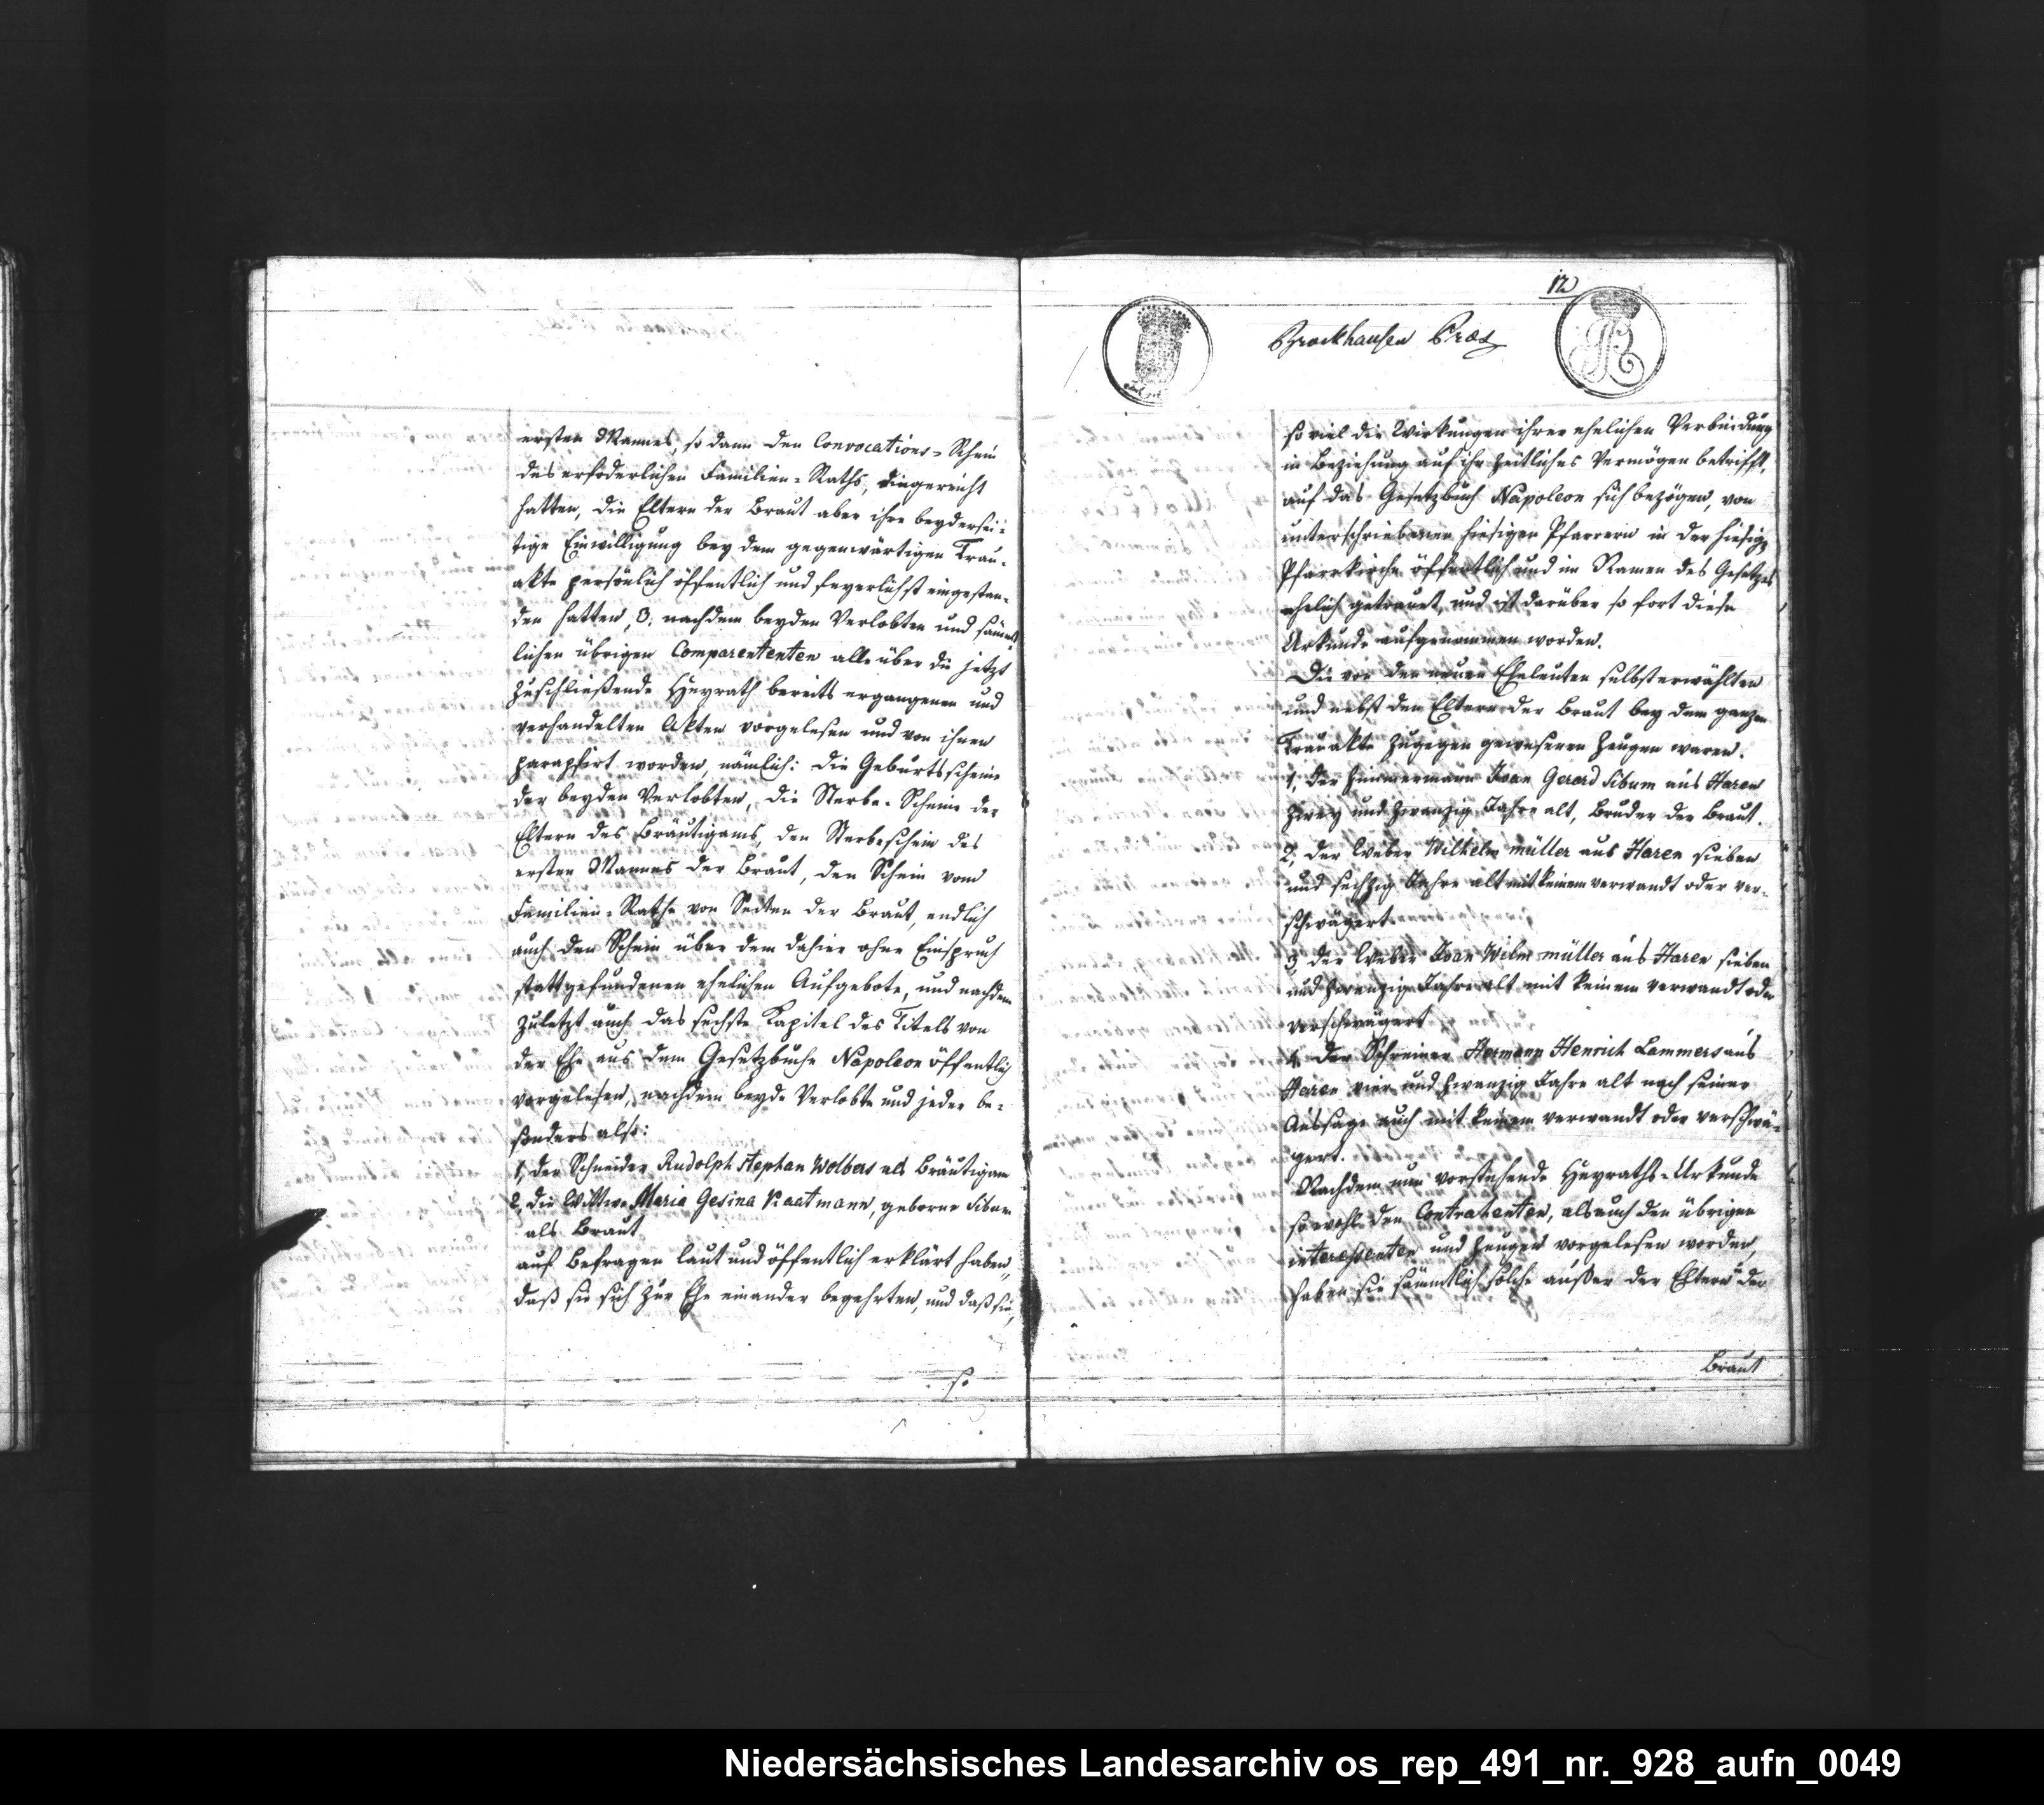 ersten Mannes, so dann den Convocations-Schein
des erforderlichen Familien-Raths, eingereicht
hatten, die Eltern der Braut aber ihre beydersei-
tige Einwilligung bey dem gegenwärtigen Trau-
akte persönlich öffentlich und feyerlichst eingestan-
den hatten, 3. nachdem beyden Verlobten und sämmt
lichen übrigen Comparententen alle über die jetzt
zuschließende Heyrath bereits ergangenen und
verhandelten Akten vorgelesen und von ihnen
paraphirt worden, nämlich: die Geburtsscheine
der beyden Verlobten, die Sterbe-Scheine der
Eltern des Bräutigams, den Sterbeschein des
ersten Mannes der Braut, den Schein vom
Familien-Rathe von Seiten der Braut, endlich
auch den Schein über dem dahier ohne Einspruch
stattgefundenen ehelichen Aufgebote, und nachdem
zuletzt auch das sechste Kapitel des Titels von
der Ehe aus dem Gesetzbuche Napoleon öffentlich
vorgelesen, nachdem beyde Verlobte und jeder be-
sonders als:
1, der Schneider Rudolph Stephan Wolbers als Bräutigam
2, die Wittwe Maria Gesina Kaatmann, geborne Sibum
als Braut
auf Befragen laut und öffentlich erklärt haben,
daß sie sich zur Ehe einander begehrten, und daß sie,
so
12
Brockhausen Præs
so viel die Wirkungen ihrer ehelichen Verbindung
in Beziehung auf ihr zeitliches Vermögen betrifft,
auf das Gesetzbuch Napoleon sich bezögen, von
unterschriebenen hiesigen Pfarrern in der hiesigen
Pfarrkirche öffentlich und im Namen des Gesetzes
ehelich getrauet, und ist darüber so fort diese
Urkunde aufgenommen worden.
Die von den neuen Eheleuten selbst erwählten
und nebst den Eltern der Braut bey dem ganzen
Trauakte zugegen gewesenen Zeugen waren.
1, der Zimmermann Joan Gerard Sibum aus Haren
zwey und zwanzig Jahre alt, Bruder der Braut.
2, der Weber Wilhelm müller aus Haren sieben
und sechzig Jahre alt mit keinem verwandt oder ver-
schwägert
3, der Weber Joan Wilm müller aus Haren sieben
und zwanzig Jahre alt mit keinem verwandt oder
verschwägert
4. der Schreiner Hermann Henrich Lammers aus
Haren vier und zwanzig Jahre alt nach seiner
Aussage auch mit keinem verwandt oder verschwä-
gert.
Nachdem nun vorstehende Heyraths-Urkunde
sowohl den Contrahenten, als auch den übrigen
interessenten und Zeugen vorgelesen worden,
haben sie sämmtlich solche außer der Eltern der
Braut
Niedersächsisches Landesarchiv os_rep_491_nr._928_aufn_0049